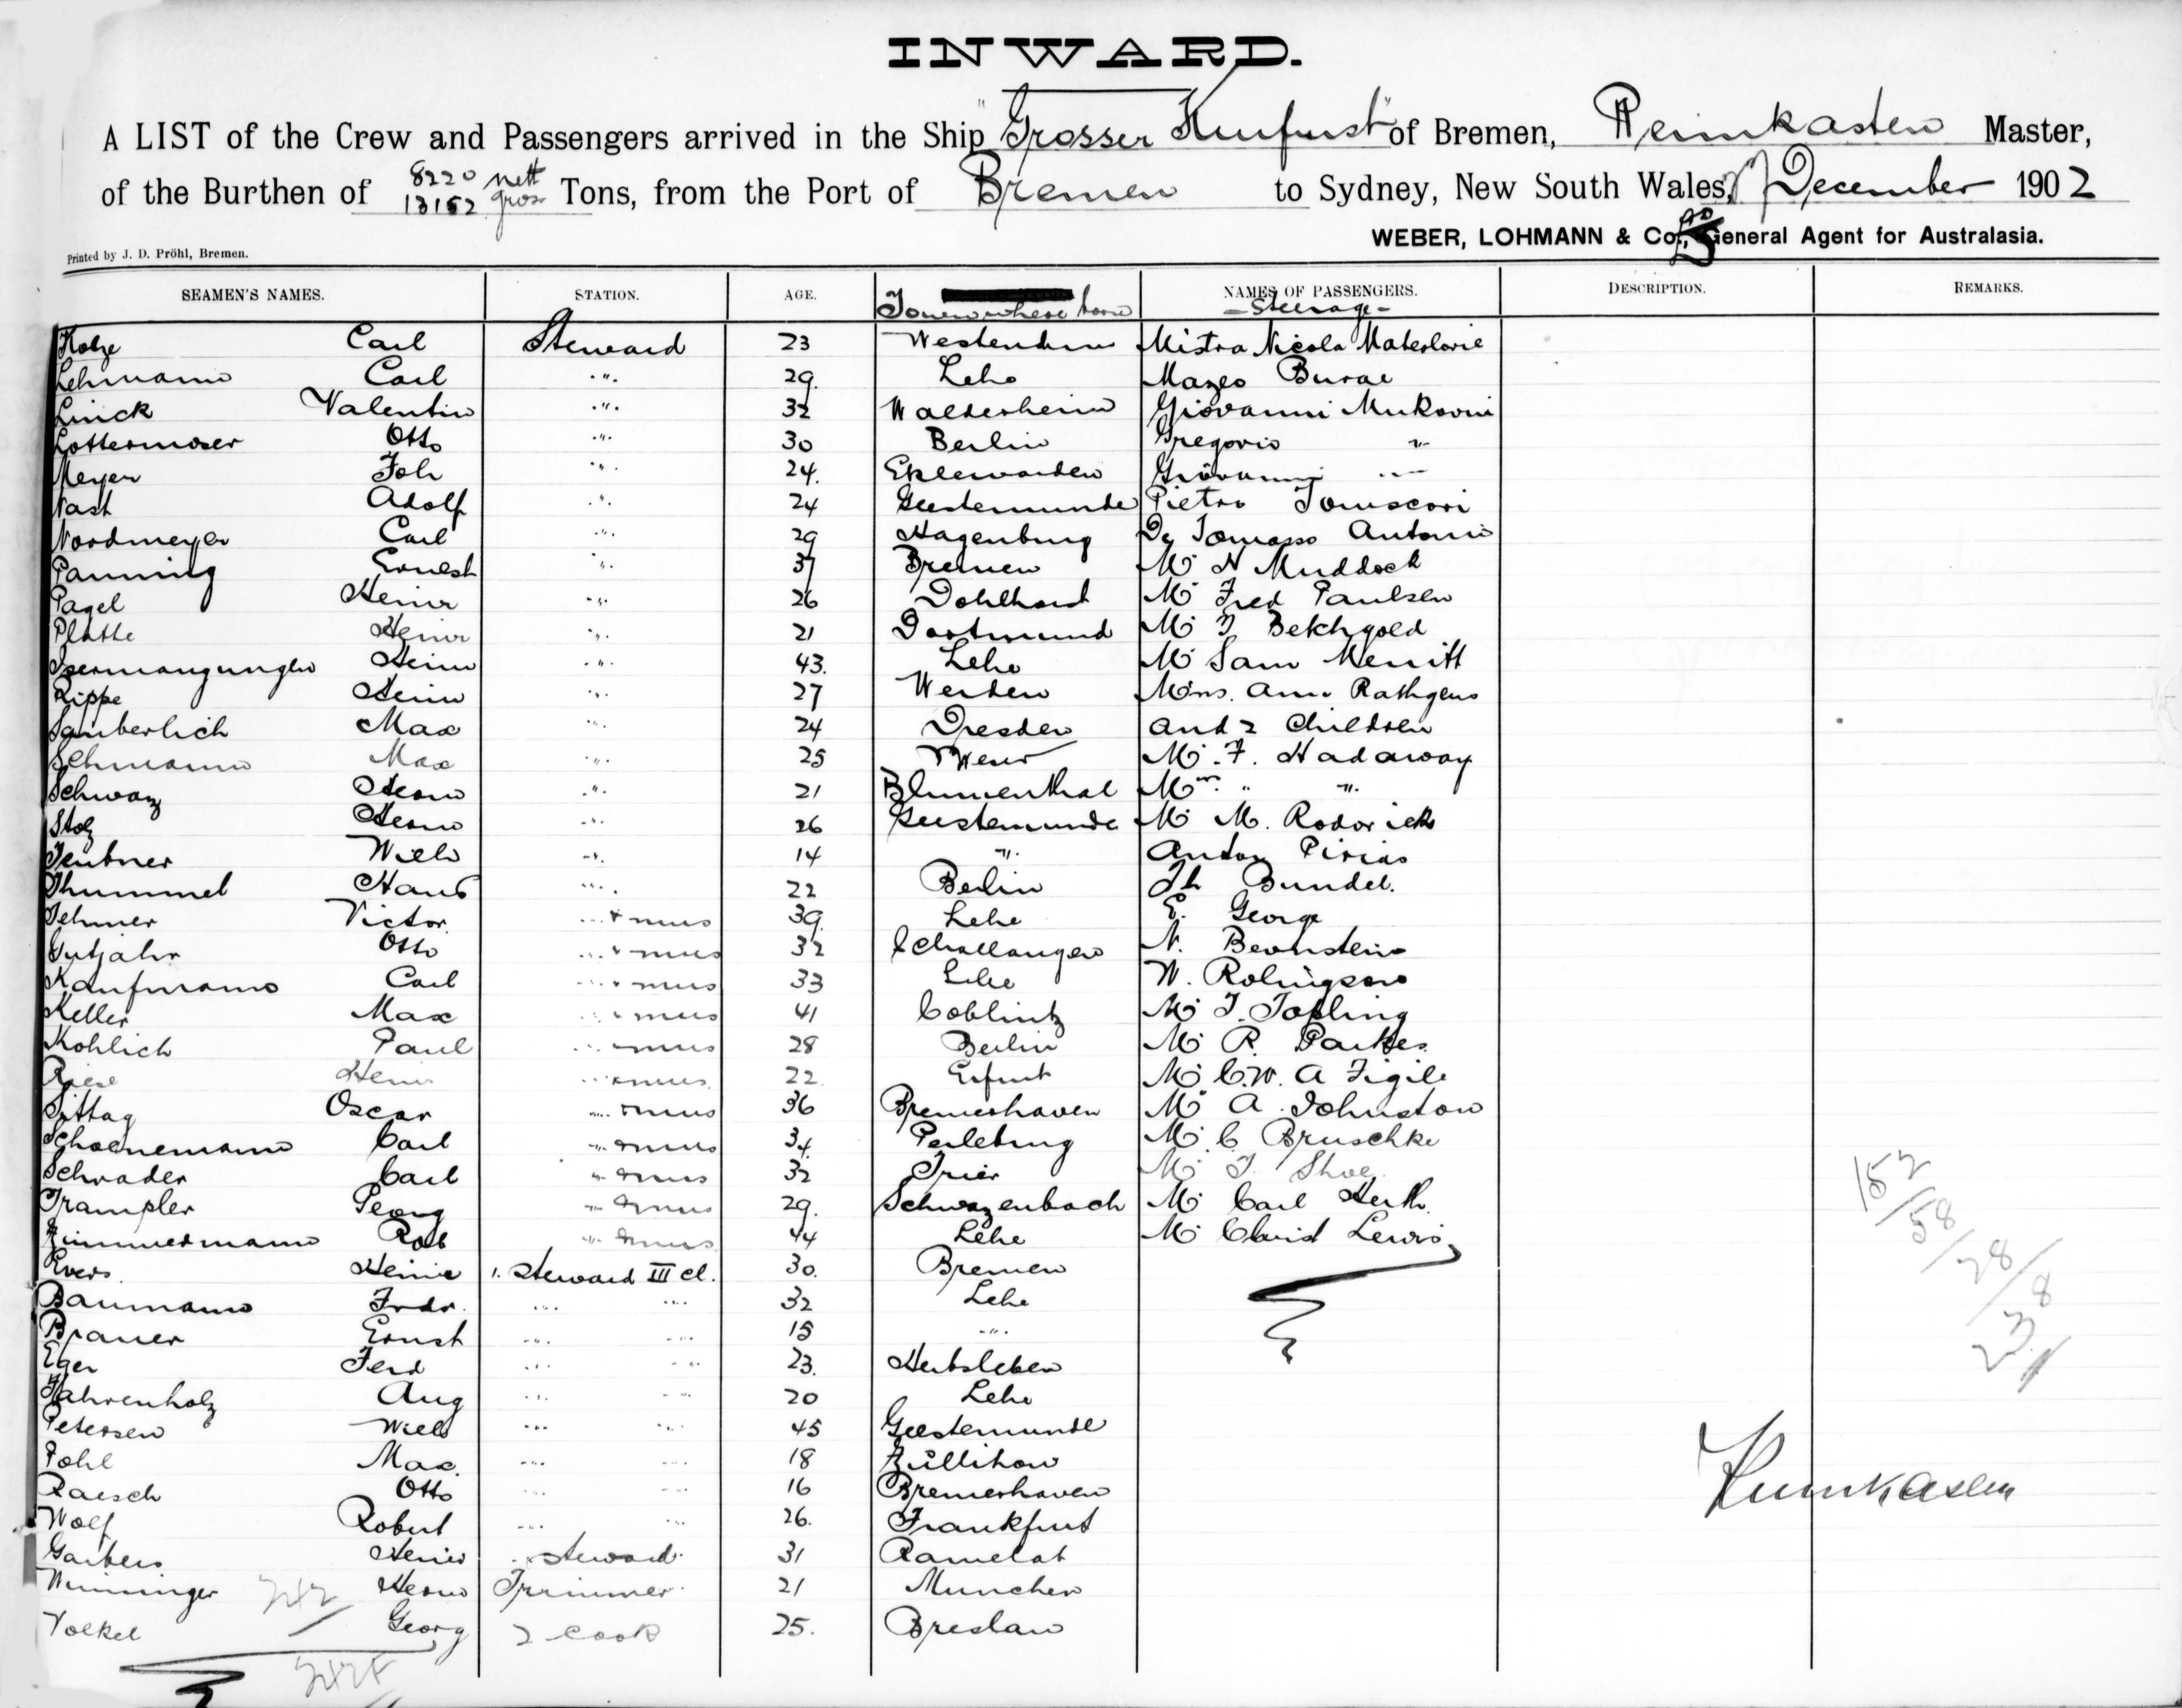 INWARD.
A LIST of the Crew and Passengers arrived in the Ship "Grosser Kurfurst" of Bremen, Reimkasten Master,
of the Burthen of 8220 nett 13182 gross Tons, from the Port of Bremen to Sydney, New South Wales, December 1902
WEBER, LOHMANN & Co., General Agent for Australasia.
Printed by J. D. Pröhl, Bremen.
SEAMEN'S NAMES. STATION. AGE. Town where born NAMES OF PASSENGERS. DESCRIPTION. REMARKS.
- Steerage -
Kotze Carl Steward 23 Mistra Nicola
Lehmann Carl " 29. Lehe Mazeo Burae
Linck Valentin " 32 Giovanni Mukovini
Lottermoser Otto " 30 Berlin Gregorio "
Meyer Joh " 24. Eklewarden Giovanni "
Nast Adolf " 24 Geestemunde Pietro
Nordmeyer Carl " 29 Hagenburg De Tomasso Antonio
Panning Ernest " 37 Bremen Mr N Muddock
Pagel Heinr " 26 Mr Fred Paulsen
Platte Heinr " 21 Dortmund Mr Betchgold
Heinr " 43. Lehe Mr Sam Merritt
Rippe Heinr " 27 Werden Mrs. Ann Rathgens
Sauberlich Max " 24 Dresden and 2 Children
Max " 25 Mr. F. Hadaway
Schwarz Herm " 21 Blumenthal Mrs " "
Stolz Herm " 26 Geestemunde Mr M. Rodorick
Teubner Wilh " 14 " Anton Pirias
Thummel Hans " 22 Berlin Th Bundel.
Victor. " mus 39. Lehe E. George
Gutjahr Otto " mus 32 N. Bernstein
Kaufmann Carl " mus 33 Lehe W.
Keller Max " mus 41 Coblintz Mr J. Topling
Kohlich Paul " mus 28 Berlin Mr R. Parkes
Riese Heinr " mus 22. Erfurt Mr C.W. A Figile
Sittag Oscar " mus 36 Bremerhaven Mr A. Johnston
Schoenemann Carl " mus 34. Perleburg Mr C Bruschke
Schrader Carl " mus 32 Trier Mr J.
Trampler Georg " mus 29. Schwazenbach Mr Carl Herth.
Zimmermann Rob " mus 44 Lehe Mr Lewis
Evers. Heinr 1. Steward III cl. 30. Bremen
Baumann Frdr. " " 32 Lehe
Brauer Ernst " " 15 "
Eger Ferd " " 23. Herbsleben
Fahrenholz Aug " " 20 Lehe
Petersen Wilh " " 45 Geestemunde
Pohl Max. " " 18 Züllihow
Raesch Otto " " 16 Bremerhaven
Wolf Robert " " 26. Frankfurt
Garbers Heinr " Steward. 31 Ramelat
Winninger Herm Trimmer. 21 Munchen
Volkel Georg 2 Cook 25. Breslau
152
58
28
Reimkasten